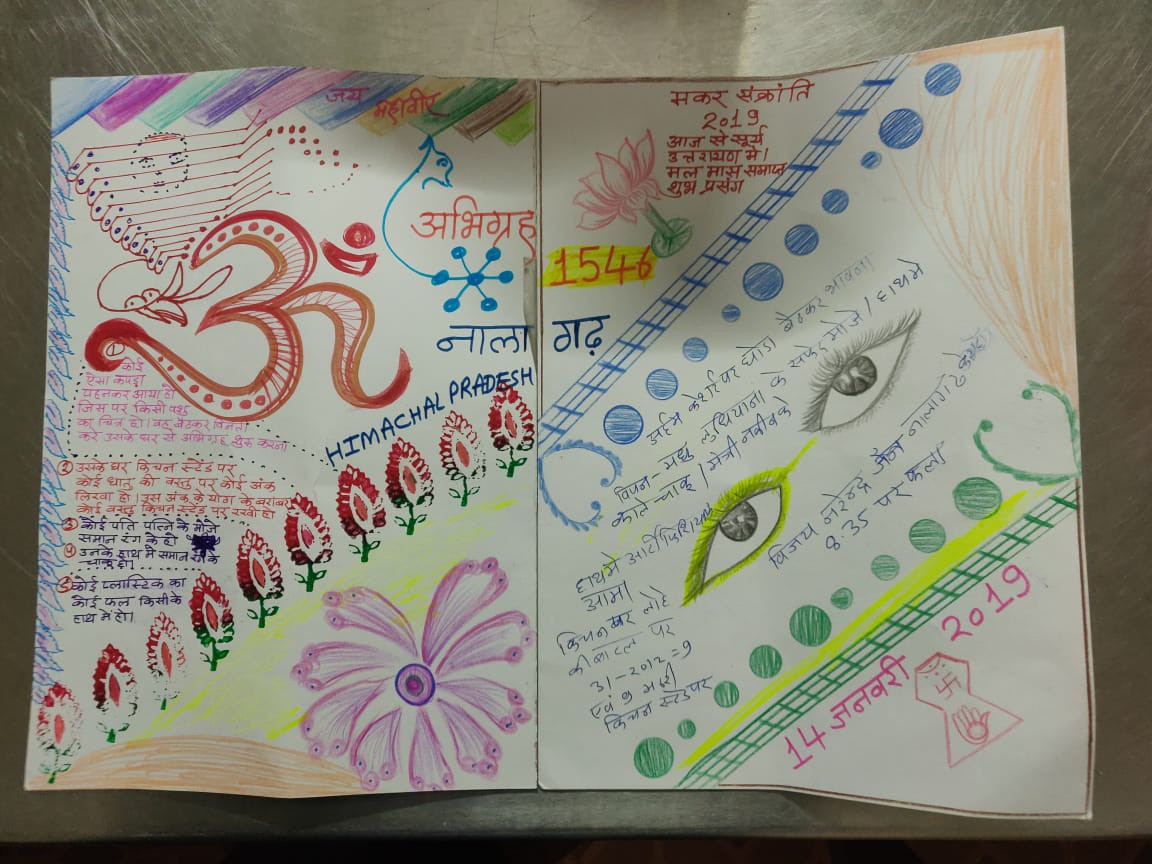 जय महावीर
अभिग्रह
नाला गढ़
HIMACHAL PRADESH
① कोई
ऐसा कपड़ा
पहनकर आया हो
जिस पर किसी पशु
का चित्र हो। वह बैठकर विनती
करे उसके घर से अभिग्रह शुरू करना
② उसके घर किचन स्टेंड पर
कोई धातु की वस्तु पर कोई अंक
लिखा हो। उस अंक के योग के बराबर
कोई वस्तु किचन स्टेंड पर रखी हो
③ कोई पति पत्नि के मोजे
समान रंग के हो
④ उनके हाथ में समान रंग के
चाकू हो।
⑤ कोई प्लास्टिक का
कोई फल किसीके
हाथ में हो।
मकर संक्रांति
2019
आज से सूर्य
उत्तरायण में।
मल मास समाप्त
शुभ प्रसंग
1546
टीशर्ट पर घोड़ा बैठकर भावना
विपन - मधु लुधियाना के सफेद मोजे। हाथमे
काले चाकू।
हाथमे आर्टिफिशियल
आम।
किचन पर लोहे
की बाटल पर
31-2012=9
एवं 9
किचन स्टेंडपर
विजय नरेन्द्र जैन नालागढ़
8.35 पर फला
14 जनवरी 2019